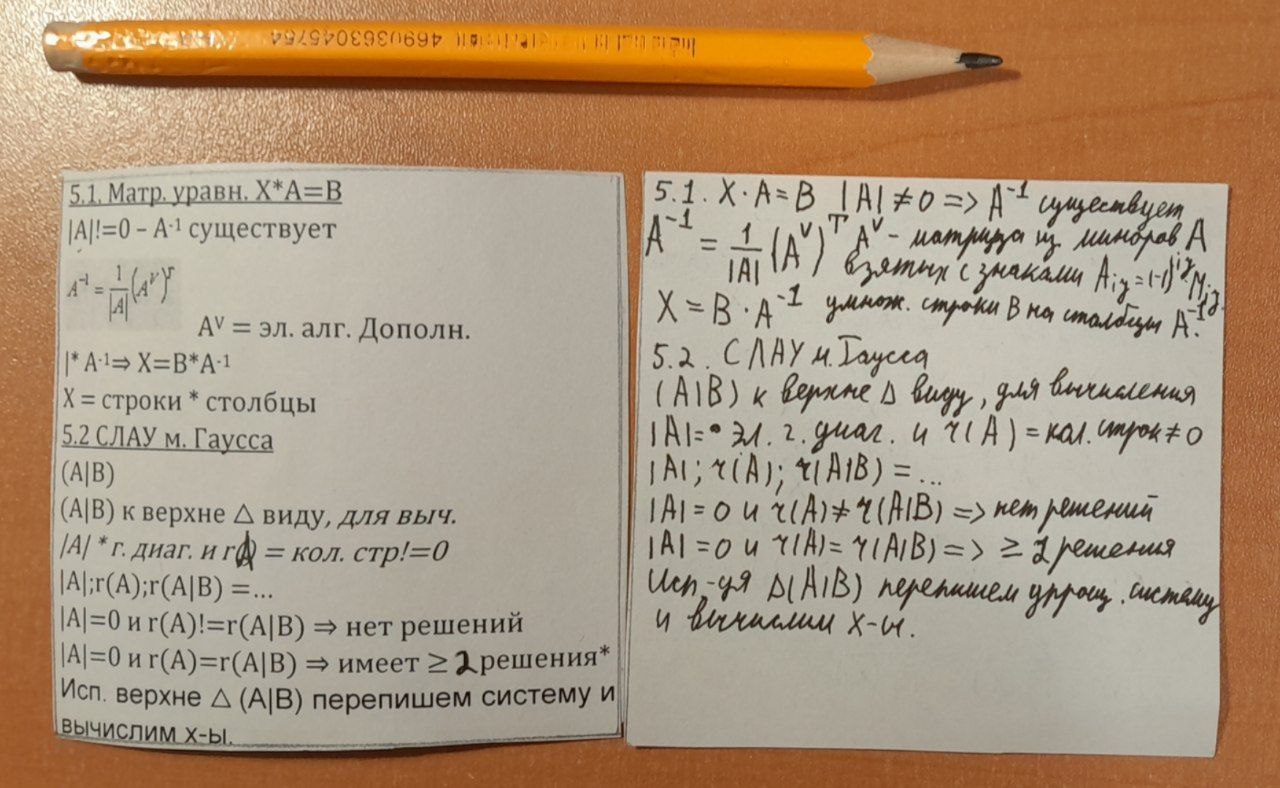 4690363045764
5.1. Матр. уравн. X*A=B
|A|!=0 – A⁻¹ существует
A⁻¹ = 1/|A| (Aⱽ)ᵀ
Aⱽ = эл. алг. Дополн.
|* A⁻¹⇒ X=B*A⁻¹
X = строки * столбцы
5.2 СЛАУ м. Гаусса
(A|B)
(A|B) к верхне △ виду, для выч.
|A| * г. диаг. и r(A) = кол. стр!=0
|A|;r(A);r(A|B) =...
|A|=0 и r(A)!=r(A|B) ⇒ нет решений
|A|=0 и r(A)=r(A|B) ⇒ имеет ≥ 2 решения*
Исп. верхне △ (A|B) перепишем систему и
вычислим х-ы.
5.1. X·A=B |A|≠0 => A⁻¹ существует
A⁻¹ = 1/|A| (Aⱽ)ᵀ Aⱽ – матрица из миноров A
взятых с знаками Aᵢⱼ=(-1)ⁱʲMᵢⱼ.
X = B·A⁻¹ умнож. строки B на столбцы A⁻¹.
5.2. СЛАУ м. Гаусса
(A|B) к верхне △ виду, для вычисления
|A|=• эл. г. диаг. и r(A) = кол. строк≠0
|A|; r(A); r(A|B) = ...
|A|=0 и r(A)≠r(A|B) => нет решений
|A|=0 и r(A)=r(A|B) => ≥ 2 решения
Исп-уя △(A|B) перепишем упрощ. систему
и вычислим х-ы.